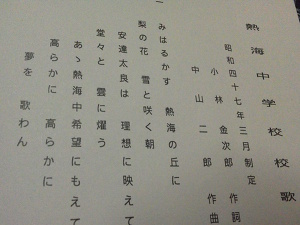 熱海中学校校歌
昭和四十七年三月制定
小林金次郎 作詞
中山二郎 作曲
一
みはるかす 熱海の丘に
梨の花 雪と咲く朝
安達太良は 理想に映えて
堂々と 雲に燿う
あゝ熱海中希望にもえて
高らかに 高らかに
夢を 歌わん